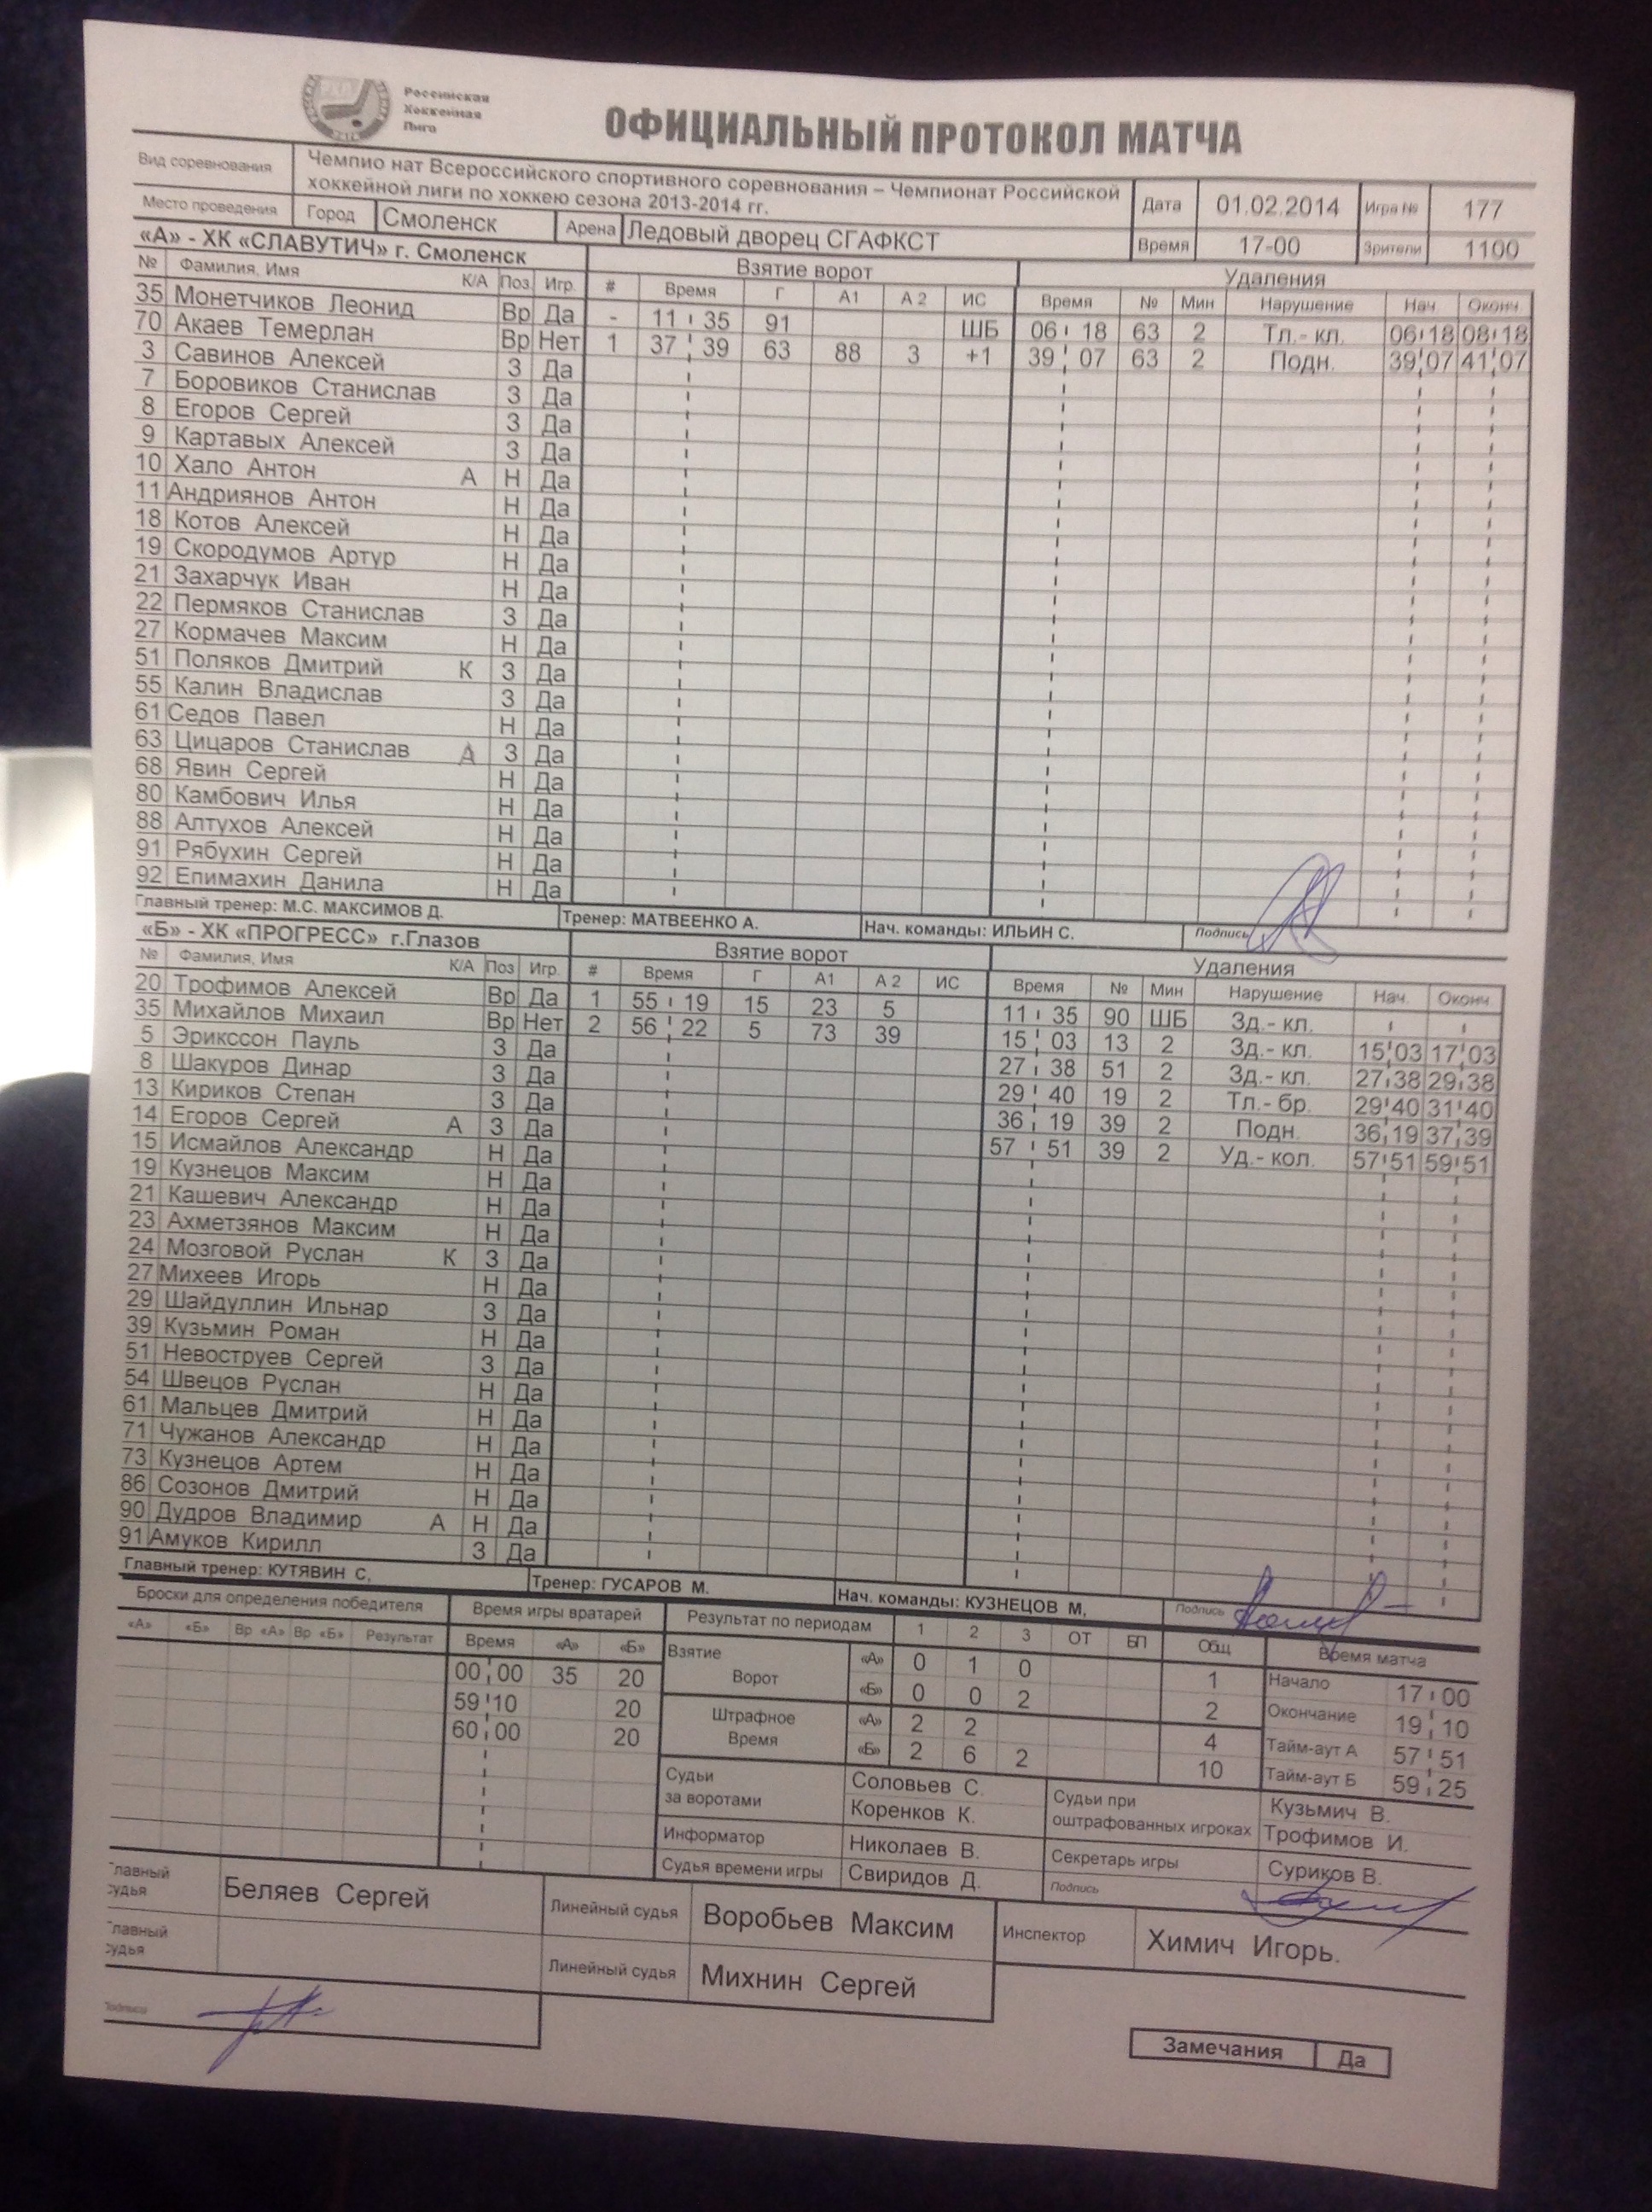 Российская
Хоккейная
Лига
ОФИЦИАЛЬНЫЙ ПРОТОКОЛ МАТЧА
Вид соревнования Чемпио нат Всероссийского спортивного соревнования – Чемпионат Российской хоккейной лиги по хоккею сезона 2013-2014 гг. Дата 01.02.2014 Игра № 177
Место проведения Город Смоленск Арена Ледовый дворец СГАФКСТ Время 17-00 Зрители 1100
«А» - ХК «СЛАВУТИЧ» г. Смоленск Взятие ворот Удаления
№ Фамилия, Имя К/А Поз Игр. # Время Г А1 А 2 ИС Время № Мин Нарушение Нач. Оконч.
35 Монетчиков Леонид Вр Да - 11 35 91 ШБ 06 18 63 2 Тл.- кл. 06 18 08 18
70 Акаев Темерлан Вр Нет 1 37 39 63 88 3 +1 39 07 63 2 Подн. 39 07 41 07
3 Савинов Алексей З Да
7 Боровиков Станислав З Да
8 Егоров Сергей З Да
9 Картавых Алексей З Да
10 Хало Антон А Н Да
11 Андриянов Антон Н Да
18 Котов Алексей Н Да
19 Скородумов Артур Н Да
21 Захарчук Иван Н Да
22 Пермяков Станислав З Да
27 Кормачев Максим Н Да
51 Поляков Дмитрий К З Да
55 Калин Владислав З Да
61 Седов Павел Н Да
63 Цицаров Станислав А З Да
68 Явин Сергей Н Да
80 Камбович Илья Н Да
88 Алтухов Алексей Н Да
91 Рябухин Сергей Н Да
92 Епимахин Данила Н Да
Главный тренер: М.С. МАКСИМОВ Д. Тренер: МАТВЕЕНКО А. Нач. команды: ИЛЬИН С. Подпись
«Б» - ХК «ПРОГРЕСС» г.Глазов Взятие ворот Удаления
№ Фамилия, Имя К/А Поз Игр. # Время Г А1 А 2 ИС Время № Мин Нарушение Нач. Оконч.
20 Трофимов Алексей Вр Да 1 55 19 15 23 5 11 35 90 ШБ Зд.- кл.
35 Михайлов Михаил Вр Нет 2 56 22 5 73 39 15 03 13 2 Зд.- кл. 15 03 17 03
5 Эрикссон Пауль З Да 27 38 51 2 Зд.- кл. 27 38 29 38
8 Шакуров Динар З Да 29 40 19 2 Тл.- бр. 29 40 31 40
13 Кириков Степан З Да 36 19 39 2 Подн. 36 19 37 39
14 Егоров Сергей А З Да 57 51 39 2 Уд.- кол. 57 51 59 51
15 Исмайлов Александр Н Да
19 Кузнецов Максим Н Да
21 Кашевич Александр Н Да
23 Ахметзянов Максим Н Да
24 Мозговой Руслан К З Да
27 Михеев Игорь Н Да
29 Шайдуллин Ильнар З Да
39 Кузьмин Роман Н Да
51 Невоструев Сергей З Да
54 Швецов Руслан Н Да
61 Мальцев Дмитрий Н Да
71 Чужанов Александр Н Да
73 Кузнецов Артем Н Да
86 Созонов Дмитрий Н Да
90 Дудров Владимир А Н Да
91 Амуков Кирилл З Да
Главный тренер: КУТЯВИН С, Тренер: ГУСАРОВ М. Нач. команды: КУЗНЕЦОВ М, Подпись
Броски для определения победителя Время игры вратарей Результат по периодам 1 2 3 ОТ БП Общ Время матча
«А» «Б» Вр «А» Вр «Б» Результат Время «А» «Б»
00 00 35 20 Взятие Ворот «А» 0 1 0 1 Начало 17 00
59 10 20 «Б» 0 0 2 2 Окончание 19 10
60 00 20 Штрафное Время «А» 2 2 4 Тайм-аут А 57 51
«Б» 2 6 2 10 Тайм-аут Б 59 25
Судьи за воротами Соловьев С. Коренков К. Судьи при оштрафованных игроках Кузьмич В. Трофимов И.
Информатор Николаев В. Секретарь игры Суриков В.
Судья времени игры Свиридов Д. Подпись
Главный судья Беляев Сергей Линейный судья Воробьев Максим Инспектор Химич Игорь.
Главный судья Линейный судья Михнин Сергей
Подпись
Замечания Да